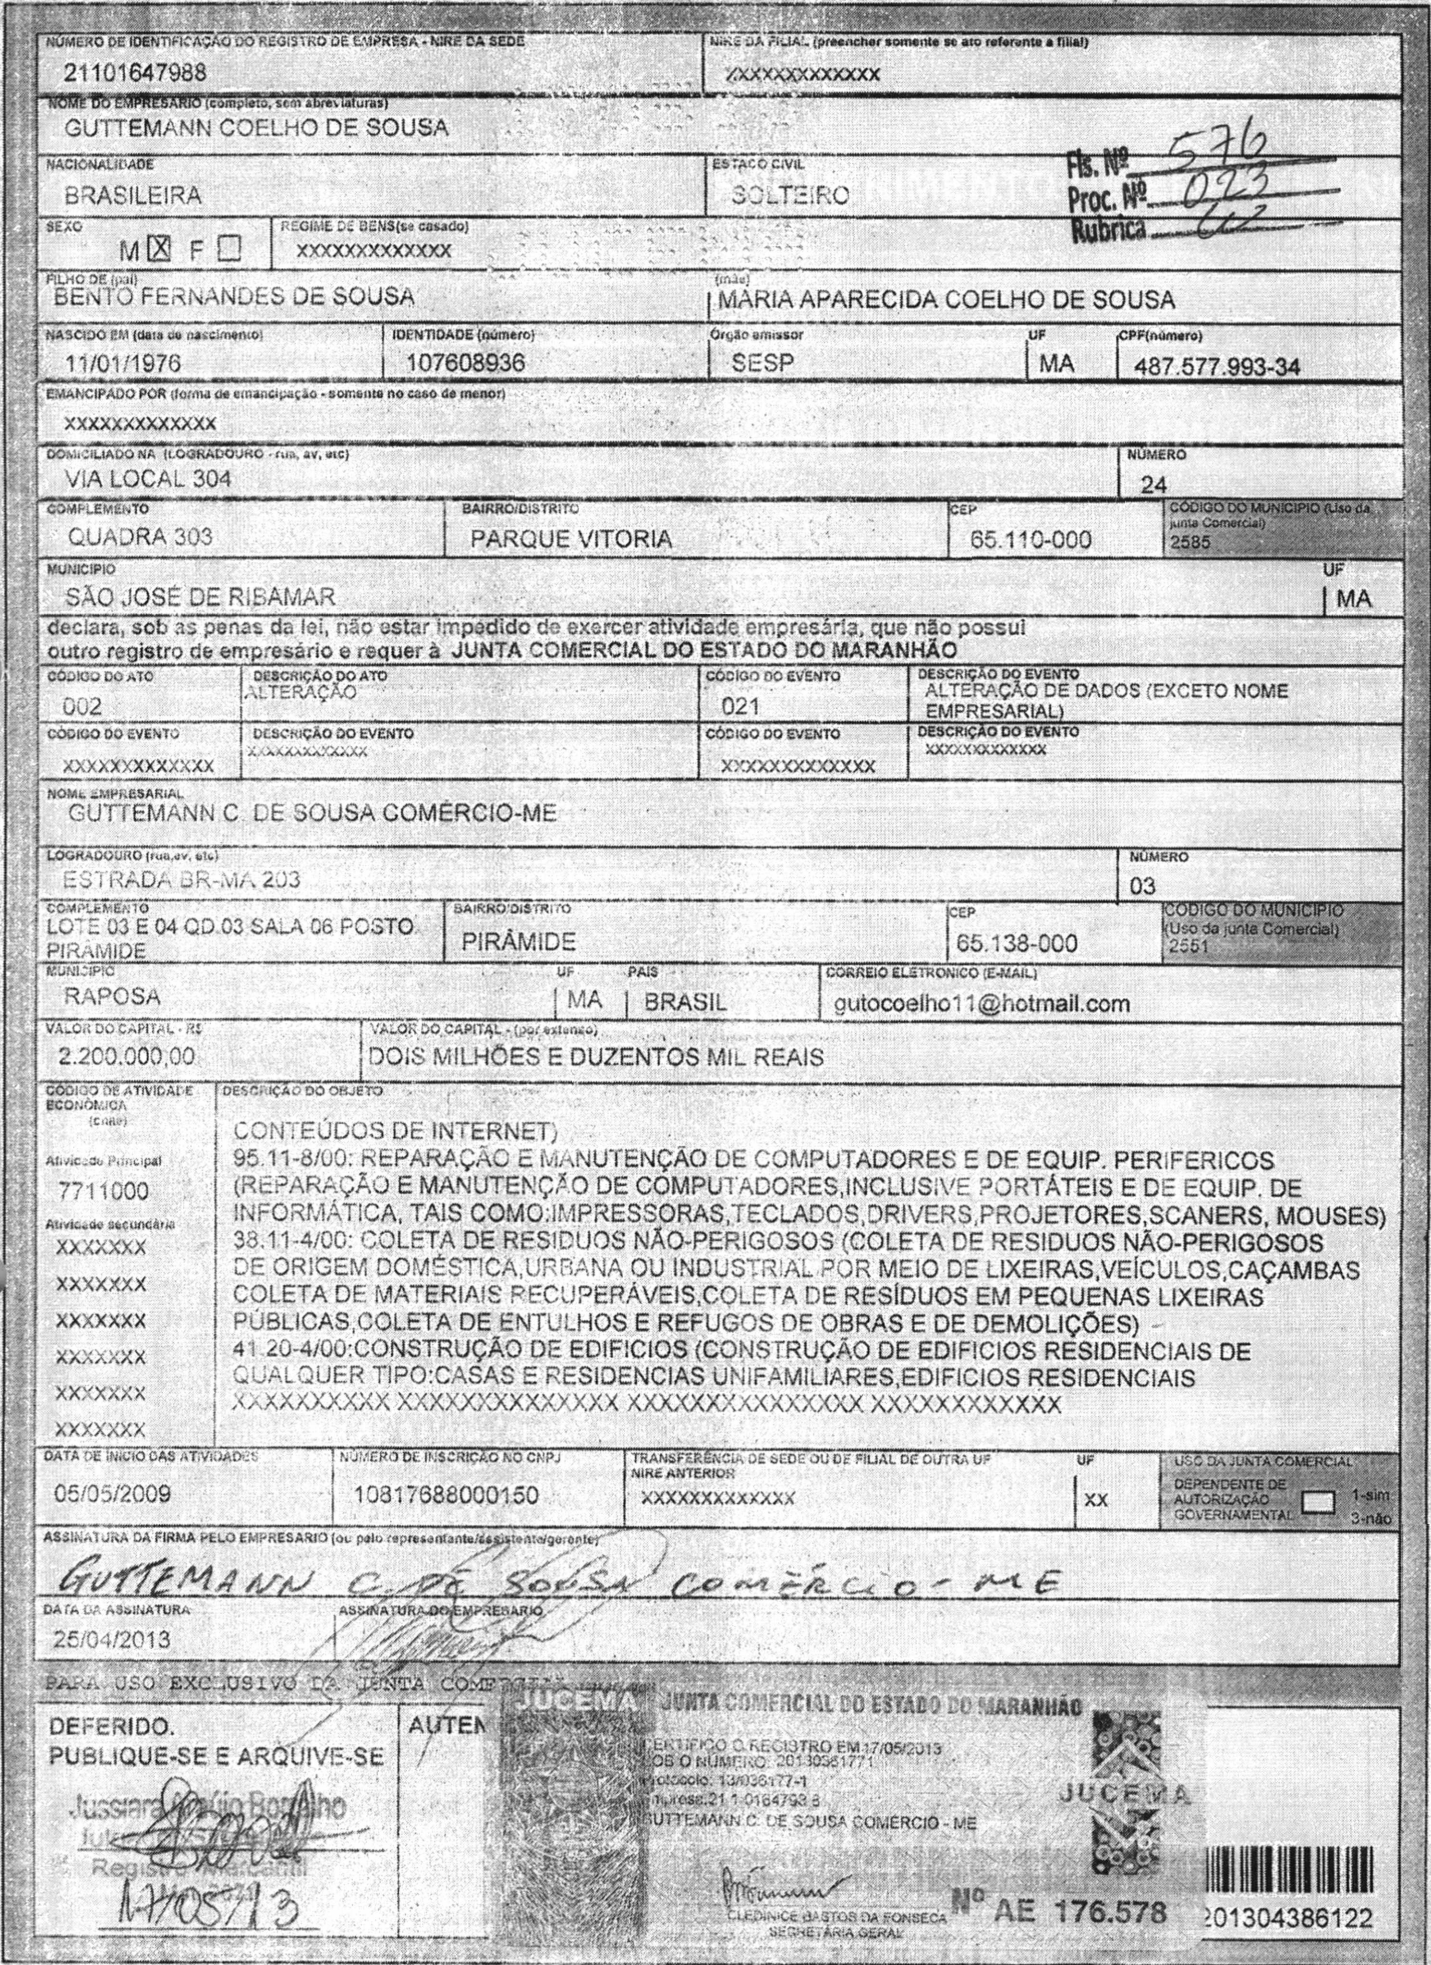 NÚMERO DE IDENTIFICAÇÃO DO REGISTRO DE EMPRESA - NIRE DA SEDE
21101647988
NIRE DA FILIAL (preencher somente se ato referente a filial)
XXXXXXXXXXXXX
NOME DO EMPRESÁRIO (completo, sem abreviaturas)
GUTTEMANN COELHO DE SOUSA
Fls. Nº 576
Proc. Nº 023
Rubrica
NACIONALIDADE
BRASILEIRA
ESTADO CIVIL
SOLTEIRO
SEXO
M X F
REGIME DE BENS(se casado)
XXXXXXXXXXXXX
FILHO DE (pai)
BENTO FERNANDES DE SOUSA
(mãe)
MARIA APARECIDA COELHO DE SOUSA
NASCIDO EM (data de nascimento)
11/01/1976
IDENTIDADE (número)
107608936
Órgão emissor
SESP
UF
MA
CPF(número)
487.577.993-34
EMANCIPADO POR (forma de emancipação - somente no caso de menor)
XXXXXXXXXXXXX
DOMICILIADO NA (LOGRADOURO - rua, av, etc)
VIA LOCAL 304
NÚMERO
24
COMPLEMENTO
QUADRA 303
BAIRRO/DISTRITO
PARQUE VITORIA
CEP
65.110-000
CÓDIGO DO MUNICIPIO (Uso da
junta Comercial)
2585
MUNICIPIO
SÃO JOSÉ DE RIBAMAR
UF
MA
declara, sob as penas da lei, não estar impedido de exercer atividade empresária, que não possui
outro registro de empresário e requer à JUNTA COMERCIAL DO ESTADO DO MARANHÃO
CÓDIGO DO ATO
002
DESCRIÇÃO DO ATO
ALTERAÇÃO
CÓDIGO DO EVENTO
021
DESCRIÇÃO DO EVENTO
ALTERAÇÃO DE DADOS (EXCETO NOME
EMPRESARIAL)
CÓDIGO DO EVENTO
XXXXXXXXXXXXX
DESCRIÇÃO DO EVENTO
XXXXXXXXXXXXX
CÓDIGO DO EVENTO
XXXXXXXXXXXXX
DESCRIÇÃO DO EVENTO
XXXXXXXXXXXXX
NOME EMPRESARIAL
GUTTEMANN C. DE SOUSA COMÉRCIO-ME
LOGRADOURO (rua,av, etc)
ESTRADA BR-MA 203
NÚMERO
03
COMPLEMENTO
LOTE 03 E 04 QD.03 SALA 06 POSTO
PIRÂMIDE
BAIRRO/DISTRITO
PIRÂMIDE
CEP
65.138-000
CODIGO DO MUNICIPIO
(Uso da junta Comercial)
2551
MUNICIPIO
RAPOSA
UF
MA
PAIS
BRASIL
CORREIO ELETRONICO (E-MAIL)
gutocoelho11@hotmail.com
VALOR DO CAPITAL - R$
2.200.000,00
VALOR DO CAPITAL - (por extenso)
DOIS MILHÕES E DUZENTOS MIL REAIS
CÓDIGO DE ATIVIDADE
ECONÔMICA
(CNAE)
Atividade Principal
7711000
Atividade secundária
XXXXXXX
XXXXXXX
XXXXXXX
XXXXXXX
XXXXXXX
XXXXXXX
DESCRIÇÃO DO OBJETO
CONTEÚDOS DE INTERNET)
95.11-8/00: REPARAÇÃO E MANUTENÇÃO DE COMPUTADORES E DE EQUIP. PERIFERICOS
(REPARAÇÃO E MANUTENÇÃO DE COMPUTADORES,INCLUSIVE PORTÁTEIS E DE EQUIP. DE
INFORMÁTICA, TAIS COMO:IMPRESSORAS,TECLADOS,DRIVERS,PROJETORES,SCANERS, MOUSES)
38.11-4/00: COLETA DE RESIDUOS NÃO-PERIGOSOS (COLETA DE RESIDUOS NÃO-PERIGOSOS
DE ORIGEM DOMÉSTICA,URBANA OU INDUSTRIAL POR MEIO DE LIXEIRAS,VEÍCULOS,CAÇAMBAS
COLETA DE MATERIAIS RECUPERÁVEIS,COLETA DE RESÍDUOS EM PEQUENAS LIXEIRAS
PÚBLICAS,COLETA DE ENTULHOS E REFUGOS DE OBRAS E DE DEMOLIÇÕES)
41.20-4/00:CONSTRUÇÃO DE EDIFICIOS (CONSTRUÇÃO DE EDIFICIOS RESIDENCIAIS DE
QUALQUER TIPO:CASAS E RESIDENCIAS UNIFAMILIARES,EDIFICIOS RESIDENCIAIS
XXXXXXXXXX XXXXXXXXXXXXXX XXXXXXXXXXXXXXX XXXXXXXXXXXX
DATA DE INICIO DAS ATIVIDADES
05/05/2009
NÚMERO DE INSCRIÇÃO NO CNPJ
10817688000150
TRANSFERÊNCIA DE SEDE OU DE FILIAL DE OUTRA UF
NIRE ANTERIOR
XXXXXXXXXXXXX
UF
XX
USO DA JUNTA COMERCIAL
DEPENDENTE DE
AUTORIZAÇÃO
GOVERNAMENTAL
1-sim
3-não
ASSINATURA DA FIRMA PELO EMPRESARIO (ou pelo representante/assistente/gerente)
GUTTEMANN C. DE SOUSA COMÉRCIO - ME
DATA DA ASSINATURA
25/04/2013
ASSINATURA DO EMPRESARIO
PARA USO EXCLUSIVO DA JUNTA COMERCIAL
DEFERIDO.
PUBLIQUE-SE E ARQUIVE-SE
Jussiara Araújo
Registro Mercantil
17/05/13
AUTEN
JUCEMA
JUNTA COMERCIAL DO ESTADO DO MARANHÃO
CERTIFICO O REGISTRO EM 17/05/2013
SOB O NÚMERO: 20130361771
Protocolo: 13/036177-1
Empresa:21 1 0164798 8
GUTTEMANN C. DE SOUSA COMÉRCIO - ME
JUCEMA
CLEDINICE BASTOS DA FONSECA
SECRETÁRIA GERAL
Nº AE 176.578
201304386122